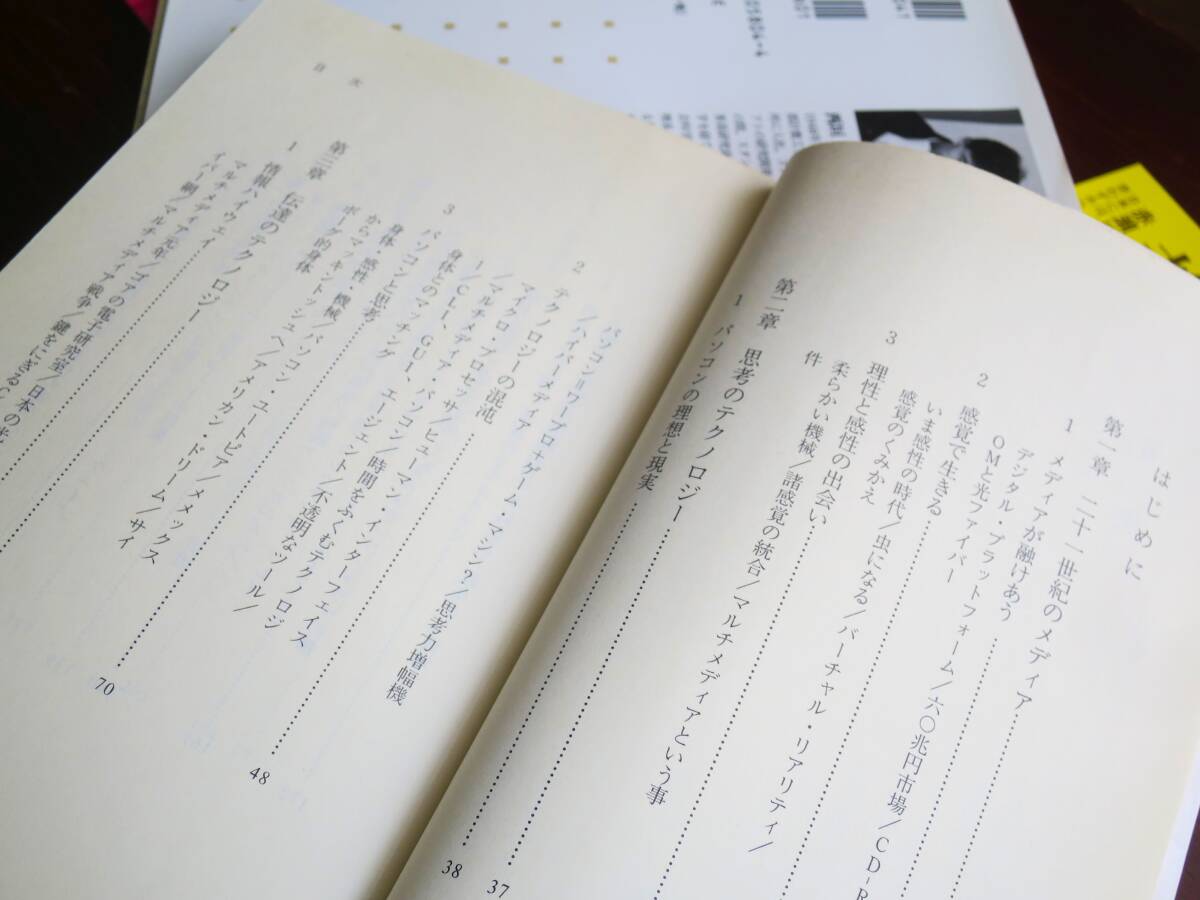 はじめに
第一章 二十一世紀のメディア
1 メディアが融けあう
デジタル・プラットフォーム／六〇兆円市場／CD-R
OMと光ファイバー
2 感覚で生きる
いま感性の時代／虫になる／バーチャル・リアリティ／
感覚のくみかえ
3 理性と感性の出会い
柔らかい機械／諸感覚の統合／マルチメディアという事
件
37
第二章 思考のテクノロジー
38
1 パソコンの理想と現実
パソコン＝ワープロ＋ゲーム・マシン？／思考力増幅機
／ハイパーメディア
2 テクノロジーの混沌
マイクロ・プロセッサ／ヒューマン・インターフェイス
／マルチメディア・パソコン／時間をふくむテクノロジ
ー／CLI、GUI、エージェント／不透明なツール／
身体とのマッチング
48
3 パソコンと思考
身体・感性・機械／パソコン・ユートピア／メメックス
からマッキントッシュへ／アメリカン・ドリーム／サイ
ボーグ的身体
第三章 伝達のテクノロジー
70
1 情報ハイウェイ
マルチメディア元年／ゴアの電子研究室／日本の光
イバー網／マルチメディア戦争／鍵をにぎるC
目次